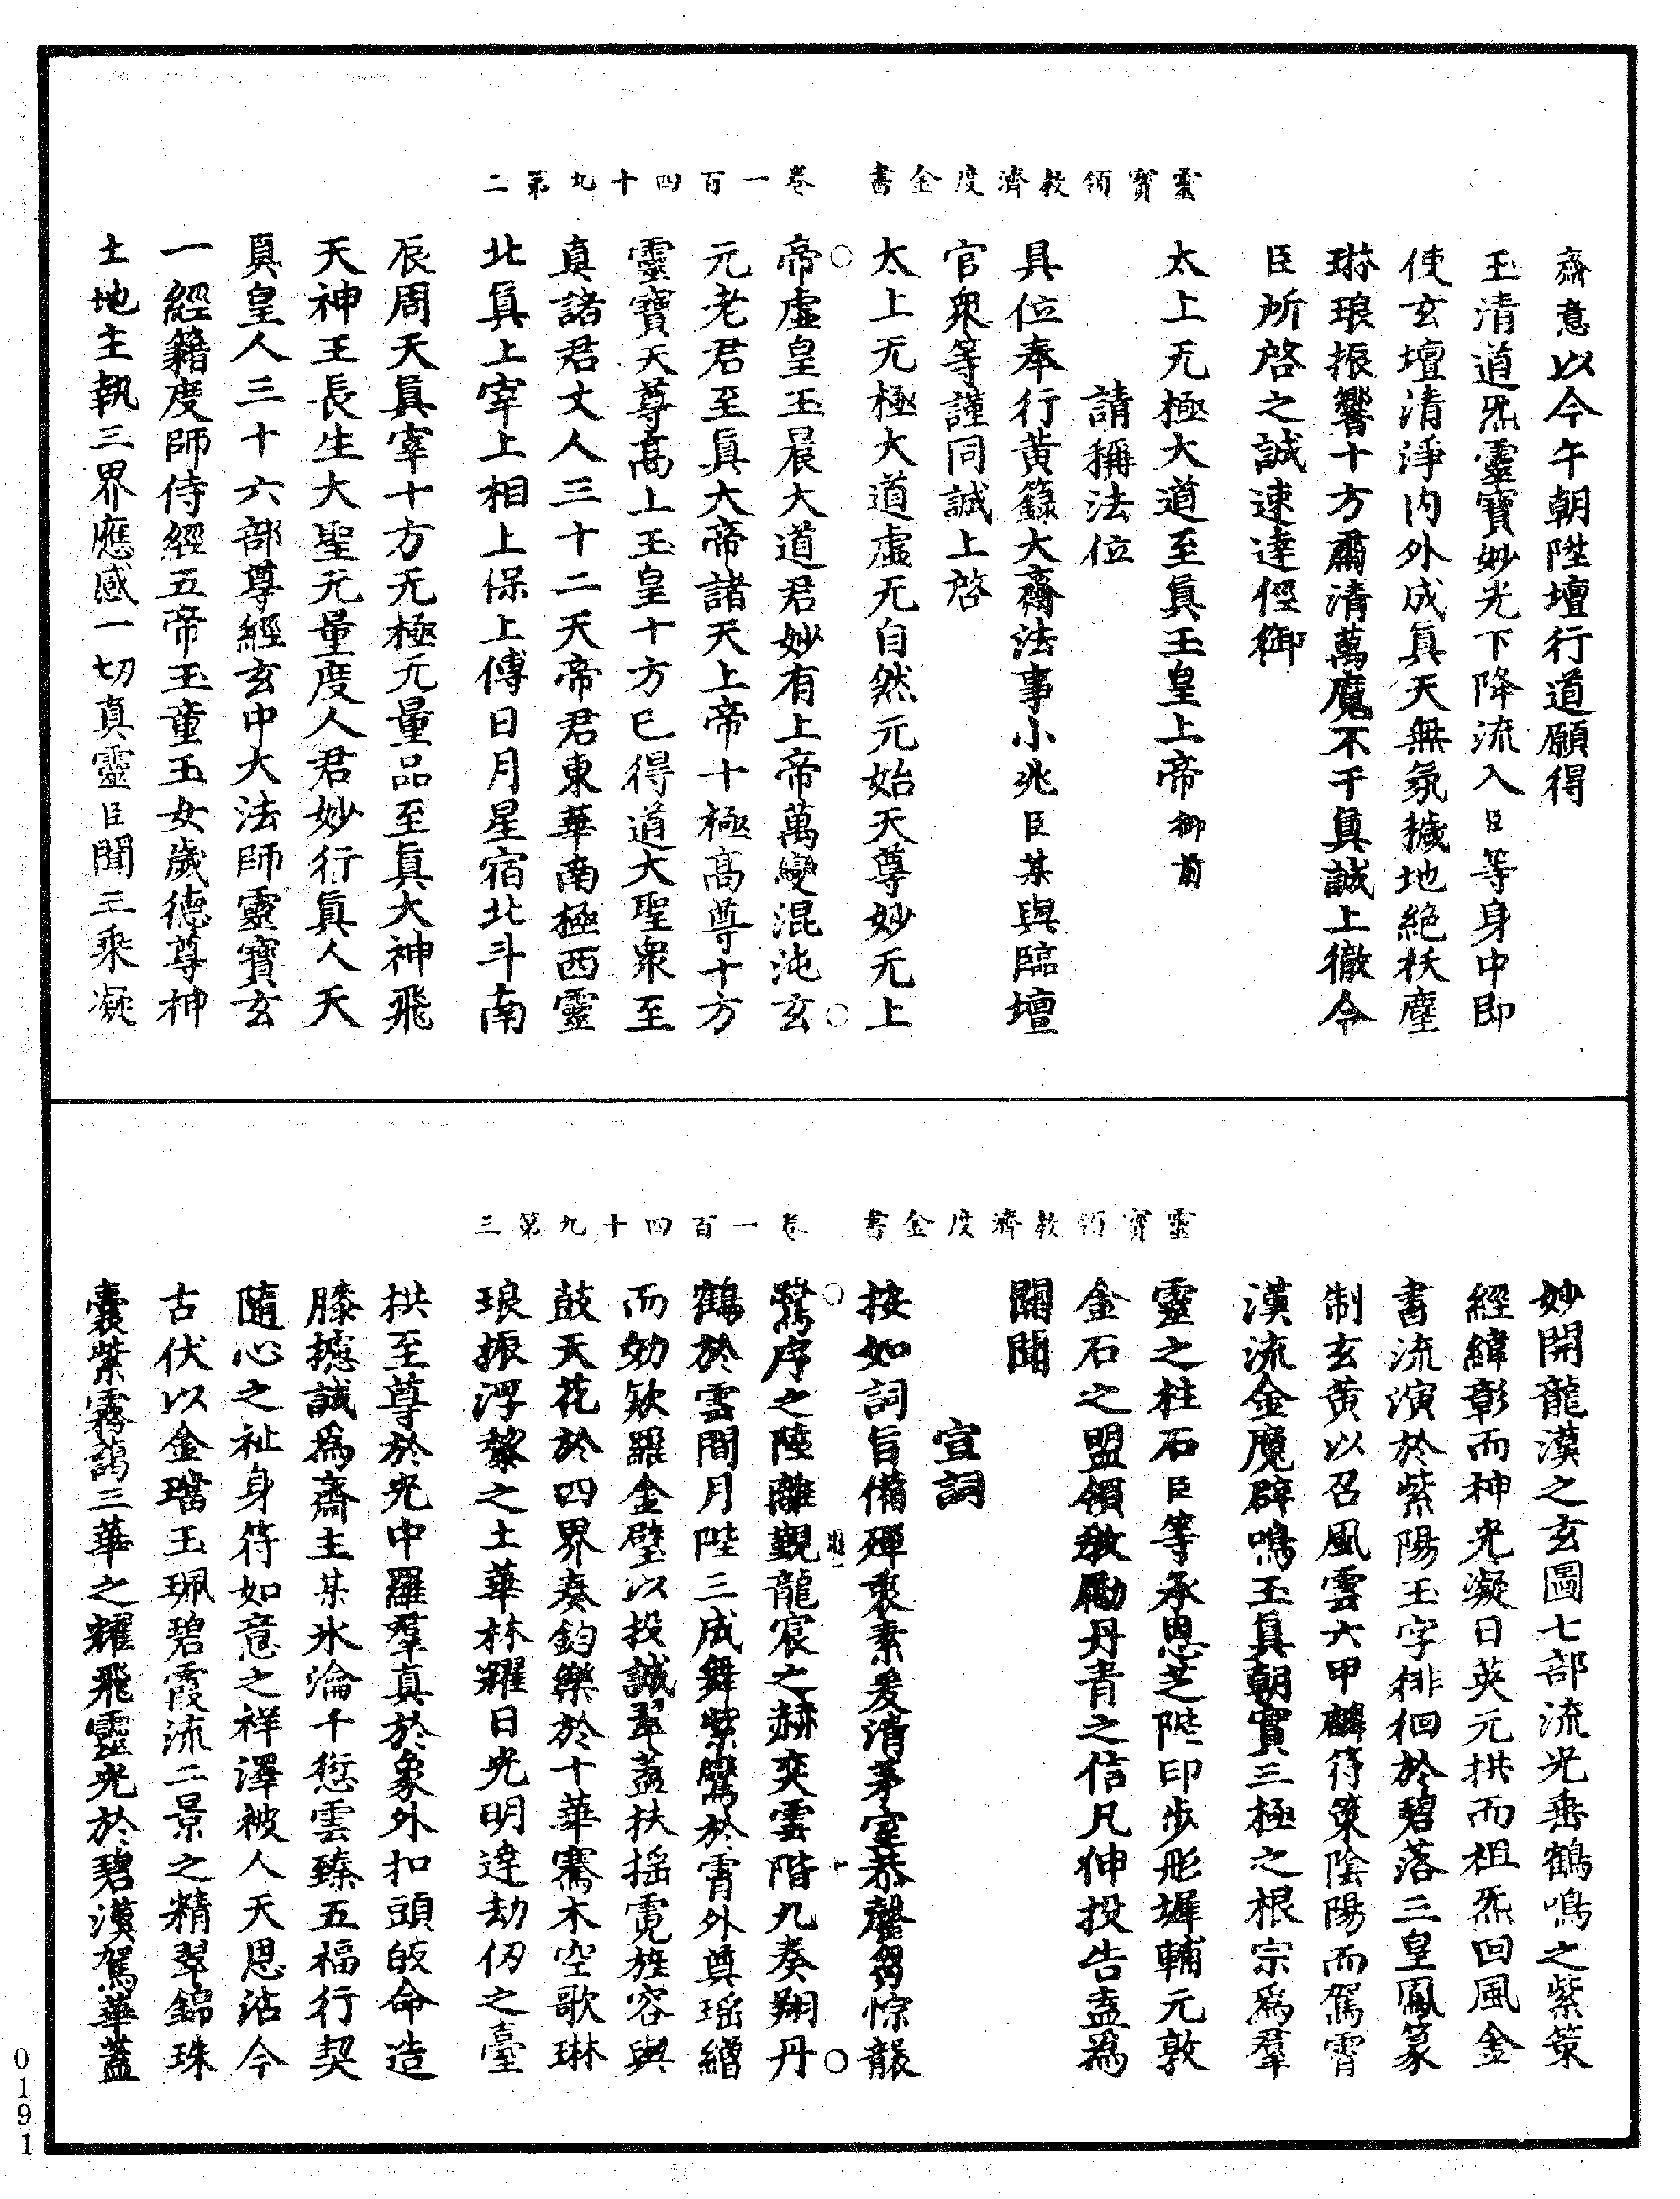 靈寶領教濟度金書　卷一百四十九第二
齋意以今午朝陞壇行道願得
玉清道炁靈寶妙光下降流入臣等身中即
使玄壇清淨內外成真天無氛穢地絕袄塵
琳琅振響十方肅清萬魔不干真誠上徹令
臣所啓之誠速達徑御
太上无極大道至真玉皇上帝御前
請稱法位
具位奉行黃籙大齋法事小兆臣某與臨壇
官衆等謹同誠上啓
太上无極大道虛无自然元始天尊妙无上
帝虛皇玉晨大道君妙有上帝萬變混沌玄
元老君至真大帝諸天上帝十極高尊十方
靈寶天尊高上玉皇十方已得道大聖衆至
真諸君丈人三十二天帝君東華南極西靈
北真上宰上相上保上傅日月星宿北斗南
辰周天真宰十方无極无量品至真大神飛
天神王長生大聖无量度人君妙行真人天
真皇人三十六部尊經玄中大法師靈寶玄
一經籍度師侍經五帝玉童玉女歲德尊神
土地主執三界應感一切真靈臣聞三乘凝
靈寶領教濟度金書　卷一百四十九第三
妙開龍漢之玄圖七部流光垂鶴鳴之紫策
經緯彰而神光凝日英元拱而祖炁回風金
書流演於紫陽玉字徘徊於碧落三皇鳳篆
制玄黃以召風雲六甲麟符策陰陽而駕霄
漢流金魔辟鳴玉真朝實三極之根宗爲羣
靈之柱石臣等承恩芝陛印步彤墀輔元敦
金石之盟領教勵丹青之信凡伸投告盍爲
關聞
宣詞
按如詞旨備殫衷素爰清茅室恭罄芻悰龍
鷟序之陸離覲龍宸之赫奕雲階九奏翔丹
鶴於雲間月陛三成舞紫鸞於霄外奠瑤繒
而効欵羅金璧以投誠翠蓋扶搖霓旌容與
鼓天花於四界奏鈞樂於十華騫木空歌琳
琅振浮黎之土華林耀日光明達劫仞之臺
拱至尊於光中羅羣真於象外扣頭皈命造
膝攄誠爲齋主某氷淪千愆雲臻五福行契
隨心之祉身符如意之祥澤被人天恩沾今
古伏以金璫玉珮碧霞流二景之精翠錦珠
囊紫霧藹三華之耀飛靈光於碧漢駕華蓋
0191